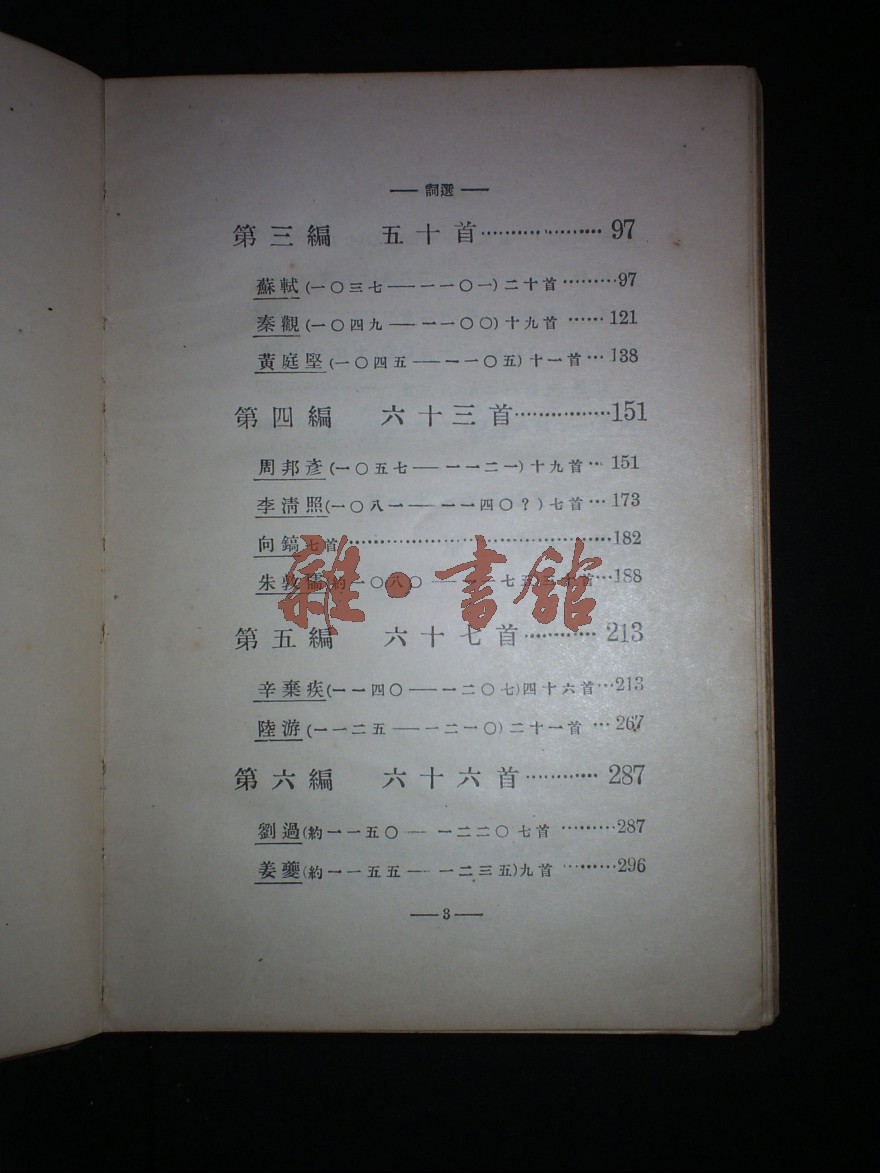 —— 詞選 ——
第三編 五十首………………… 97
蘇軾(一〇三七——一一〇一)二十首………97
秦觀(一〇四九——一一〇〇)十九首……121
黃庭堅(一〇四五——一一〇五)十一首…138
第四編 六十三首……………151
周邦彥(一〇五七——一一二一)十九首…151
李清照(一〇八一——一一四〇?)七首…173
向鎬七首………………………………182
朱敦儒(約一〇八〇——一一七五)三十首…188
雜·書館
第五編 六十七首…………213
辛棄疾(一一四〇——一二〇七)四十六首…213
陸游(一一二五——一二一〇)二十一首…267
第六編 六十六首…………287
劉過(約一一五〇—一二二〇七首………287
姜夔(約一一五五—一二三五)九首………296
—— 3 ——